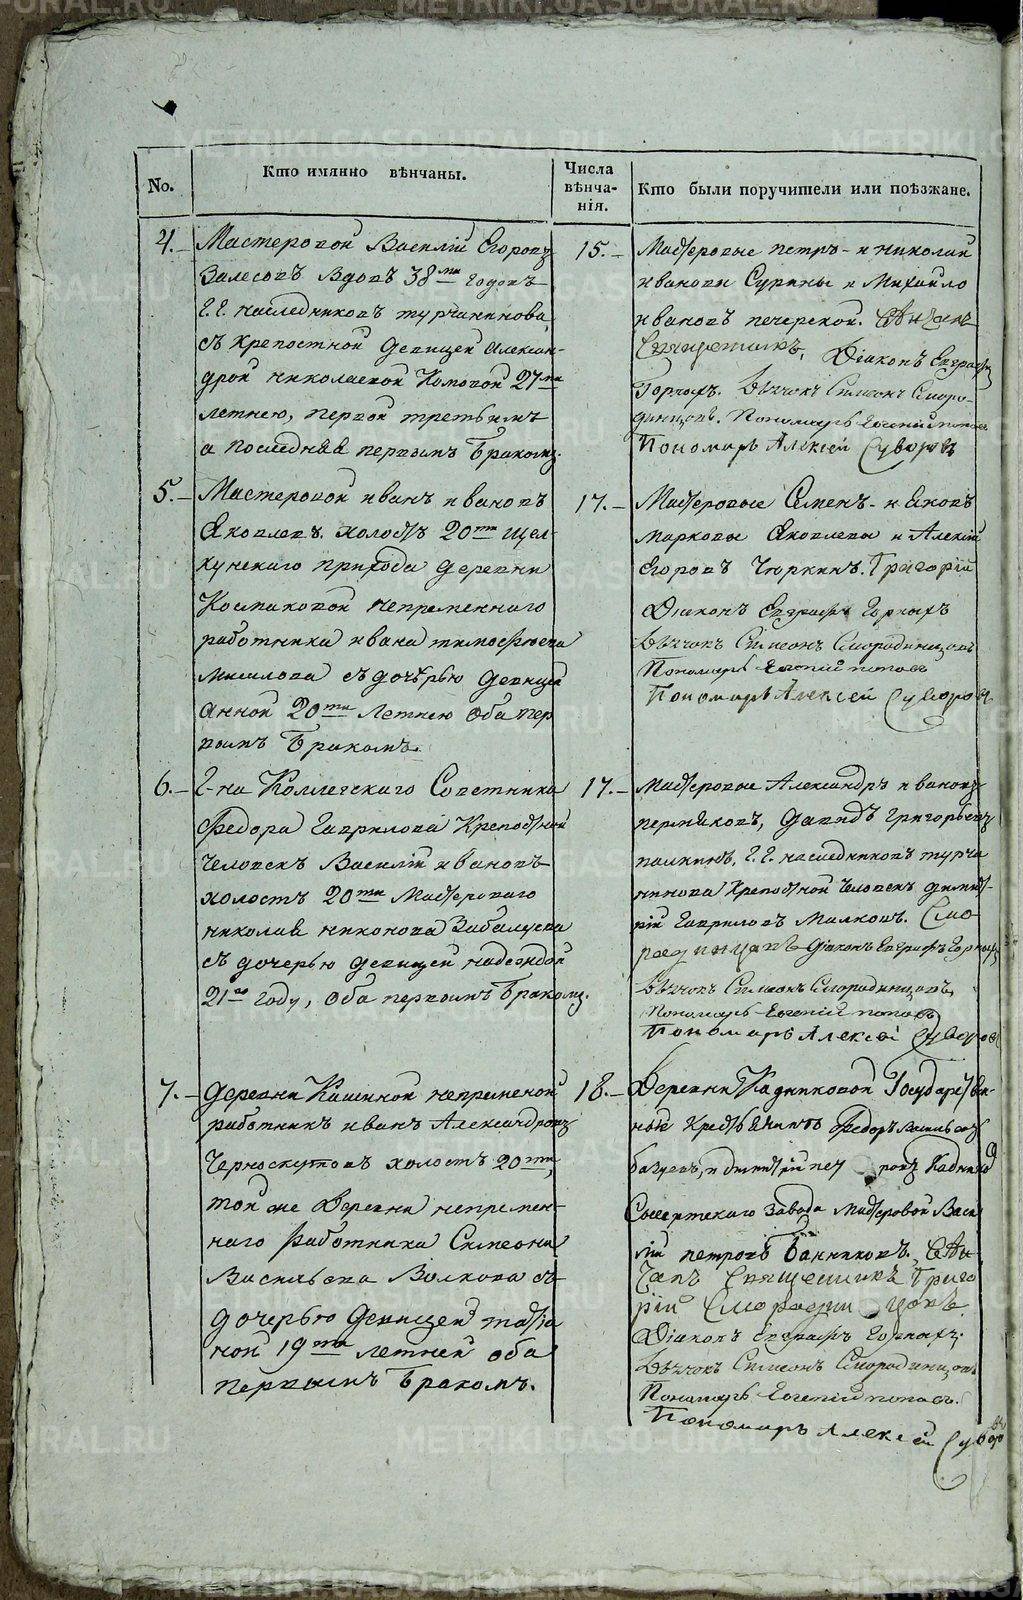 No.
Кто имянно вѣнчаны.
Числа
вѣнча-
нія.
Кто были поручители или поѣзжане.
4.
Мастеровой Василій Егоровъ
Залесовъ вдовъ 38ми годовъ
Г.г. наследниковъ турчанинова,
съ крепостной девицей Алексан-
дрой николаевой 27ми
летнею, первой третьимъ
а последняя первымъ бракомъ.
15.
Мастеровые петръ и николай
ивановы Сурины и Михайло
ивановъ печерской.
Священникъ, Діаконъ Евграфъ
Горныхъ. Дьячокъ Симеонъ Сморо-
динцовъ. Пономарь Евгеній попов
Пономарь Алексей Суворов
5.
Мастеровой иванъ ивановъ
Яковлевъ холостъ 20ти щел-
кунскаго прихода деревни
Космаковой непременнаго
работника ивана тимофеева
съ дочерью девицей
Анной 20ти летнею оба пер
вымъ бракомъ.
17.
Мастеровые Семенъ и Яковъ
марковы Яковлевы и Алексій
Егоровъ Чюркинъ. Григорій
Діаконъ Евграфъ Горныхъ
Дьячокъ Симеонъ Смородинцовъ
Пономарь Евгеній попов
Пономарь Алексей Суворов
6.
Г-на Коллегскаго Советника
Федора Гаврилова Крепостной
человекъ Василій ивановъ
холостъ 20ти Мастероваго
николая никонова
съ дочерью девицей надеждой
21го году, оба первымъ бракомъ.
17.
Мастеровые Александръ ивановъ
пермяковъ, давидъ григорьевъ
палкинъ. Г.г. наследниковъ турча
нинова крепостной человекъ димит-
рій гавриловъ Малковъ. Смо
родинцовъ Діаконъ Евграфъ Горныхъ
Дьячокъ Симеонъ Смородинцовъ
Пономарь Евгеній попов
Пономарь Алексей Суворов
7.
деревни Кашиной непременой
работникъ иванъ Александровъ
Черноскутовъ холостъ 20ти,
той же деревни непремен-
наго работника Симеона
Васильева Волкова съ
дочерью девицей татья
ной 19ти летней оба
первымъ бракомъ.
18.
Деревни Кадниковой Государствен-
ный крестьянинъ Федоръ Васильевъ
и димитрій
Сысертскаго завода мастеровой Васи
лій петровъ Банниковъ,
Священникъ Григо
рій Смородинцовъ
Діаконъ Евграфъ Горныхъ;
Дьячокъ Симеонъ Смородинцовъ
Пономарь Евгеній попов.
Пономарь Алексей Суворов
METRIKI.GASO-URAL.RU